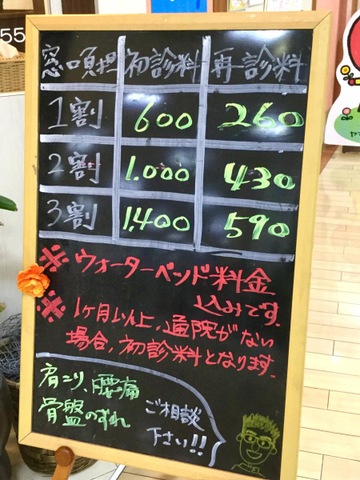 55
窓口負担 初診料 再診料
1割 600 260
2割 1.000 430
3割 1,400 590
※ウォーターベッド料金
込みです.
※1ヶ月以上、通院がない
場合、初診料となります.
肩こり、腰痛
骨盤のずれ
ご相談
下さい!!